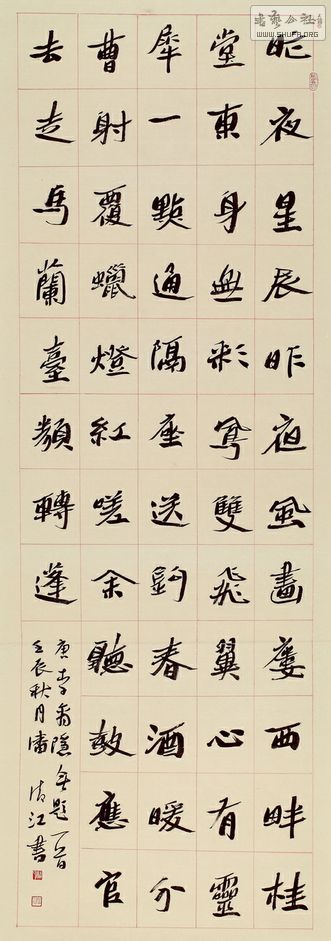 昨夜星辰昨夜風畫廔西畔桂
堂東身無彩鳳雙飛翼心有靈
犀一點通隔座送鉤春酒暖分
曹射覆蠟燈紅嗟余聽鼓應官
去走馬蘭臺類轉蓬
唐李商隱無題一首
壬辰秋月潘江書
書藝公社
WWW.SHUFA.ORG